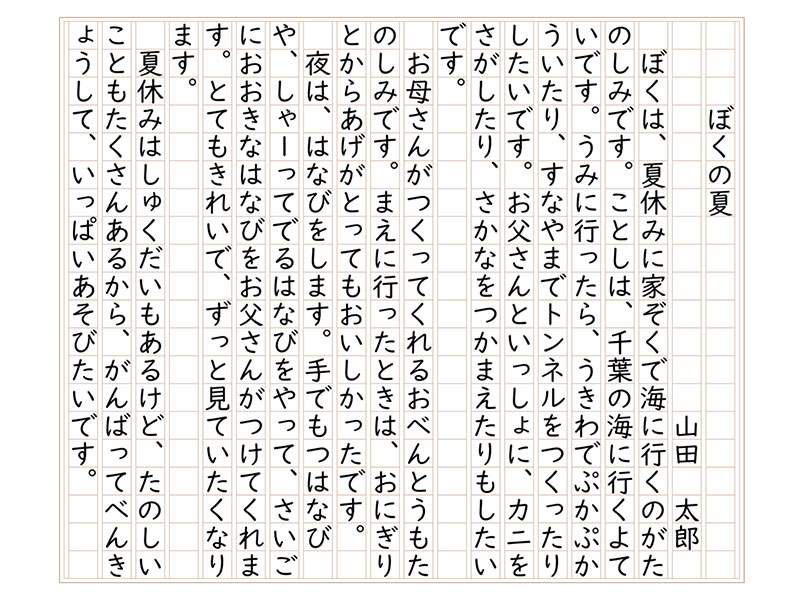 ぼくの夏
山田　太郎
　ぼくは、夏休みに家ぞくで海に行くのがた
のしみです。ことしは、千葉の海に行くよて
いです。うみに行ったら、うきわでぷかぷか
ういたり、すなやまでトンネルをつくったり
したいです。お父さんといっしょに、カニを
さがしたり、さかなをつかまえたりもしたい
です。
　お母さんがつくってくれるおべんとうもた
のしみです。まえに行ったときは、おにぎり
とからあげがとってもおいしかったです。
　夜は、はなびをします。手でもつはなび
や、しゃーってでるはなびをやって、さいご
におおきなはなびをお父さんがつけてくれま
す。とてもきれいで、ずっと見ていたくなり
ます。
　夏休みはしゅくだいもあるけど、たのしい
こともたくさんあるから、がんばってべんき
ょうして、いっぱいあそびたいです。